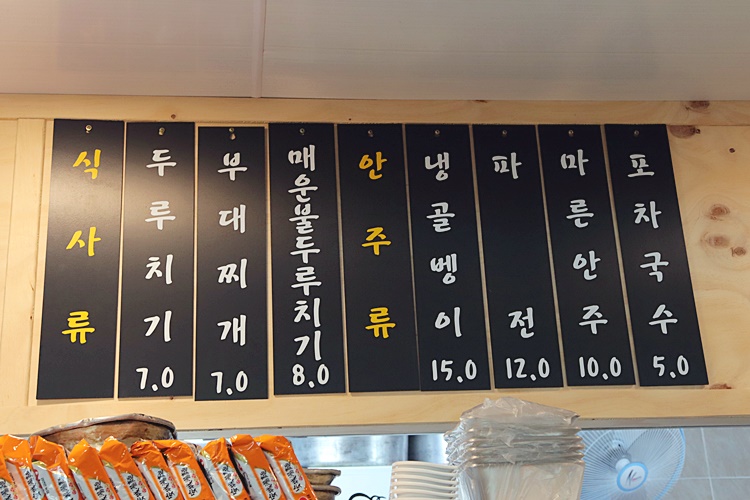 식사류
두루치기
7.0
부대찌개
7.0
매운불두루치기
8.0
안주류
냉골벵이
15.0
파전
12.0
마른안주
10.0
포차국수
5.0